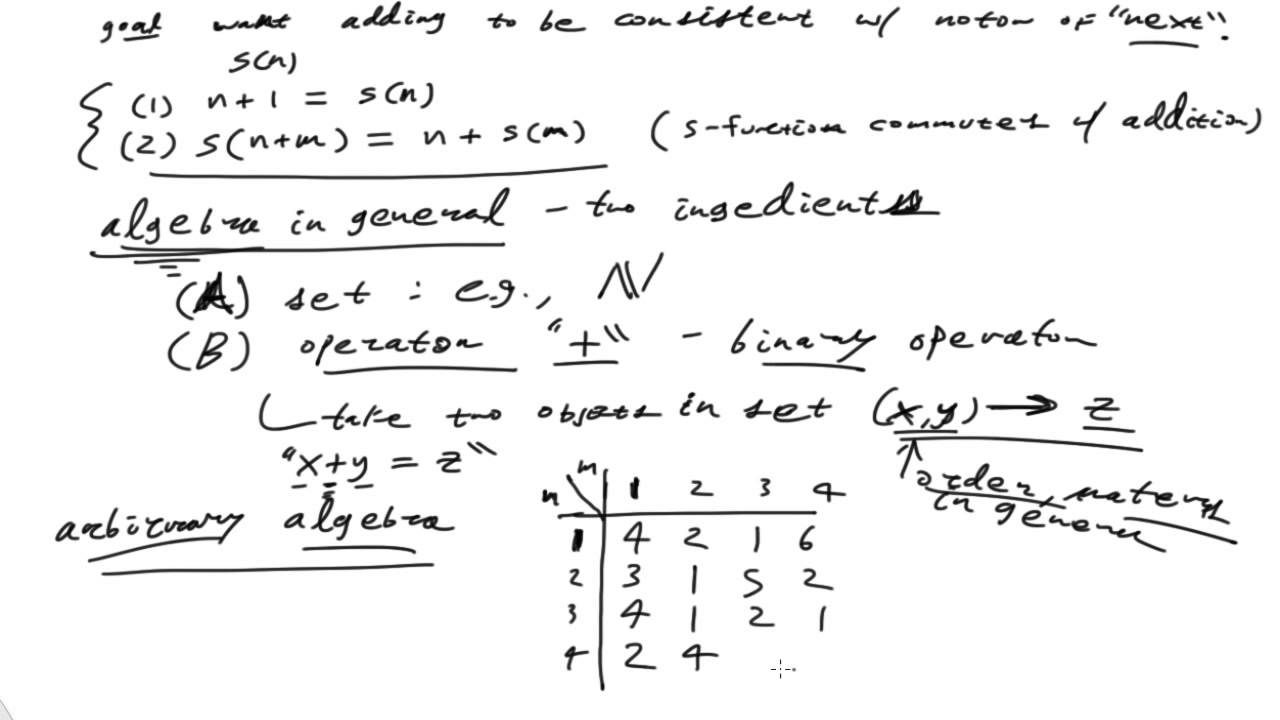 goal want adding to be consistent w/ noton of "next".
s(n)
(1) n+1 = s(n)
(2) s(n+m) = n + s(m) (s-function commutes w/ addition)
algebra in general - two ingedients
(A) set : e.g., ℕ
(B) operaton "+" - binary operaton
take two objects in set (x,y) → z
"x+y = z"
order matters
in general
arbitrary algebra
n m 1 2 3 4
1 4 2 1 6
2 3 1 5 2
3 4 1 2 1
4 2 4